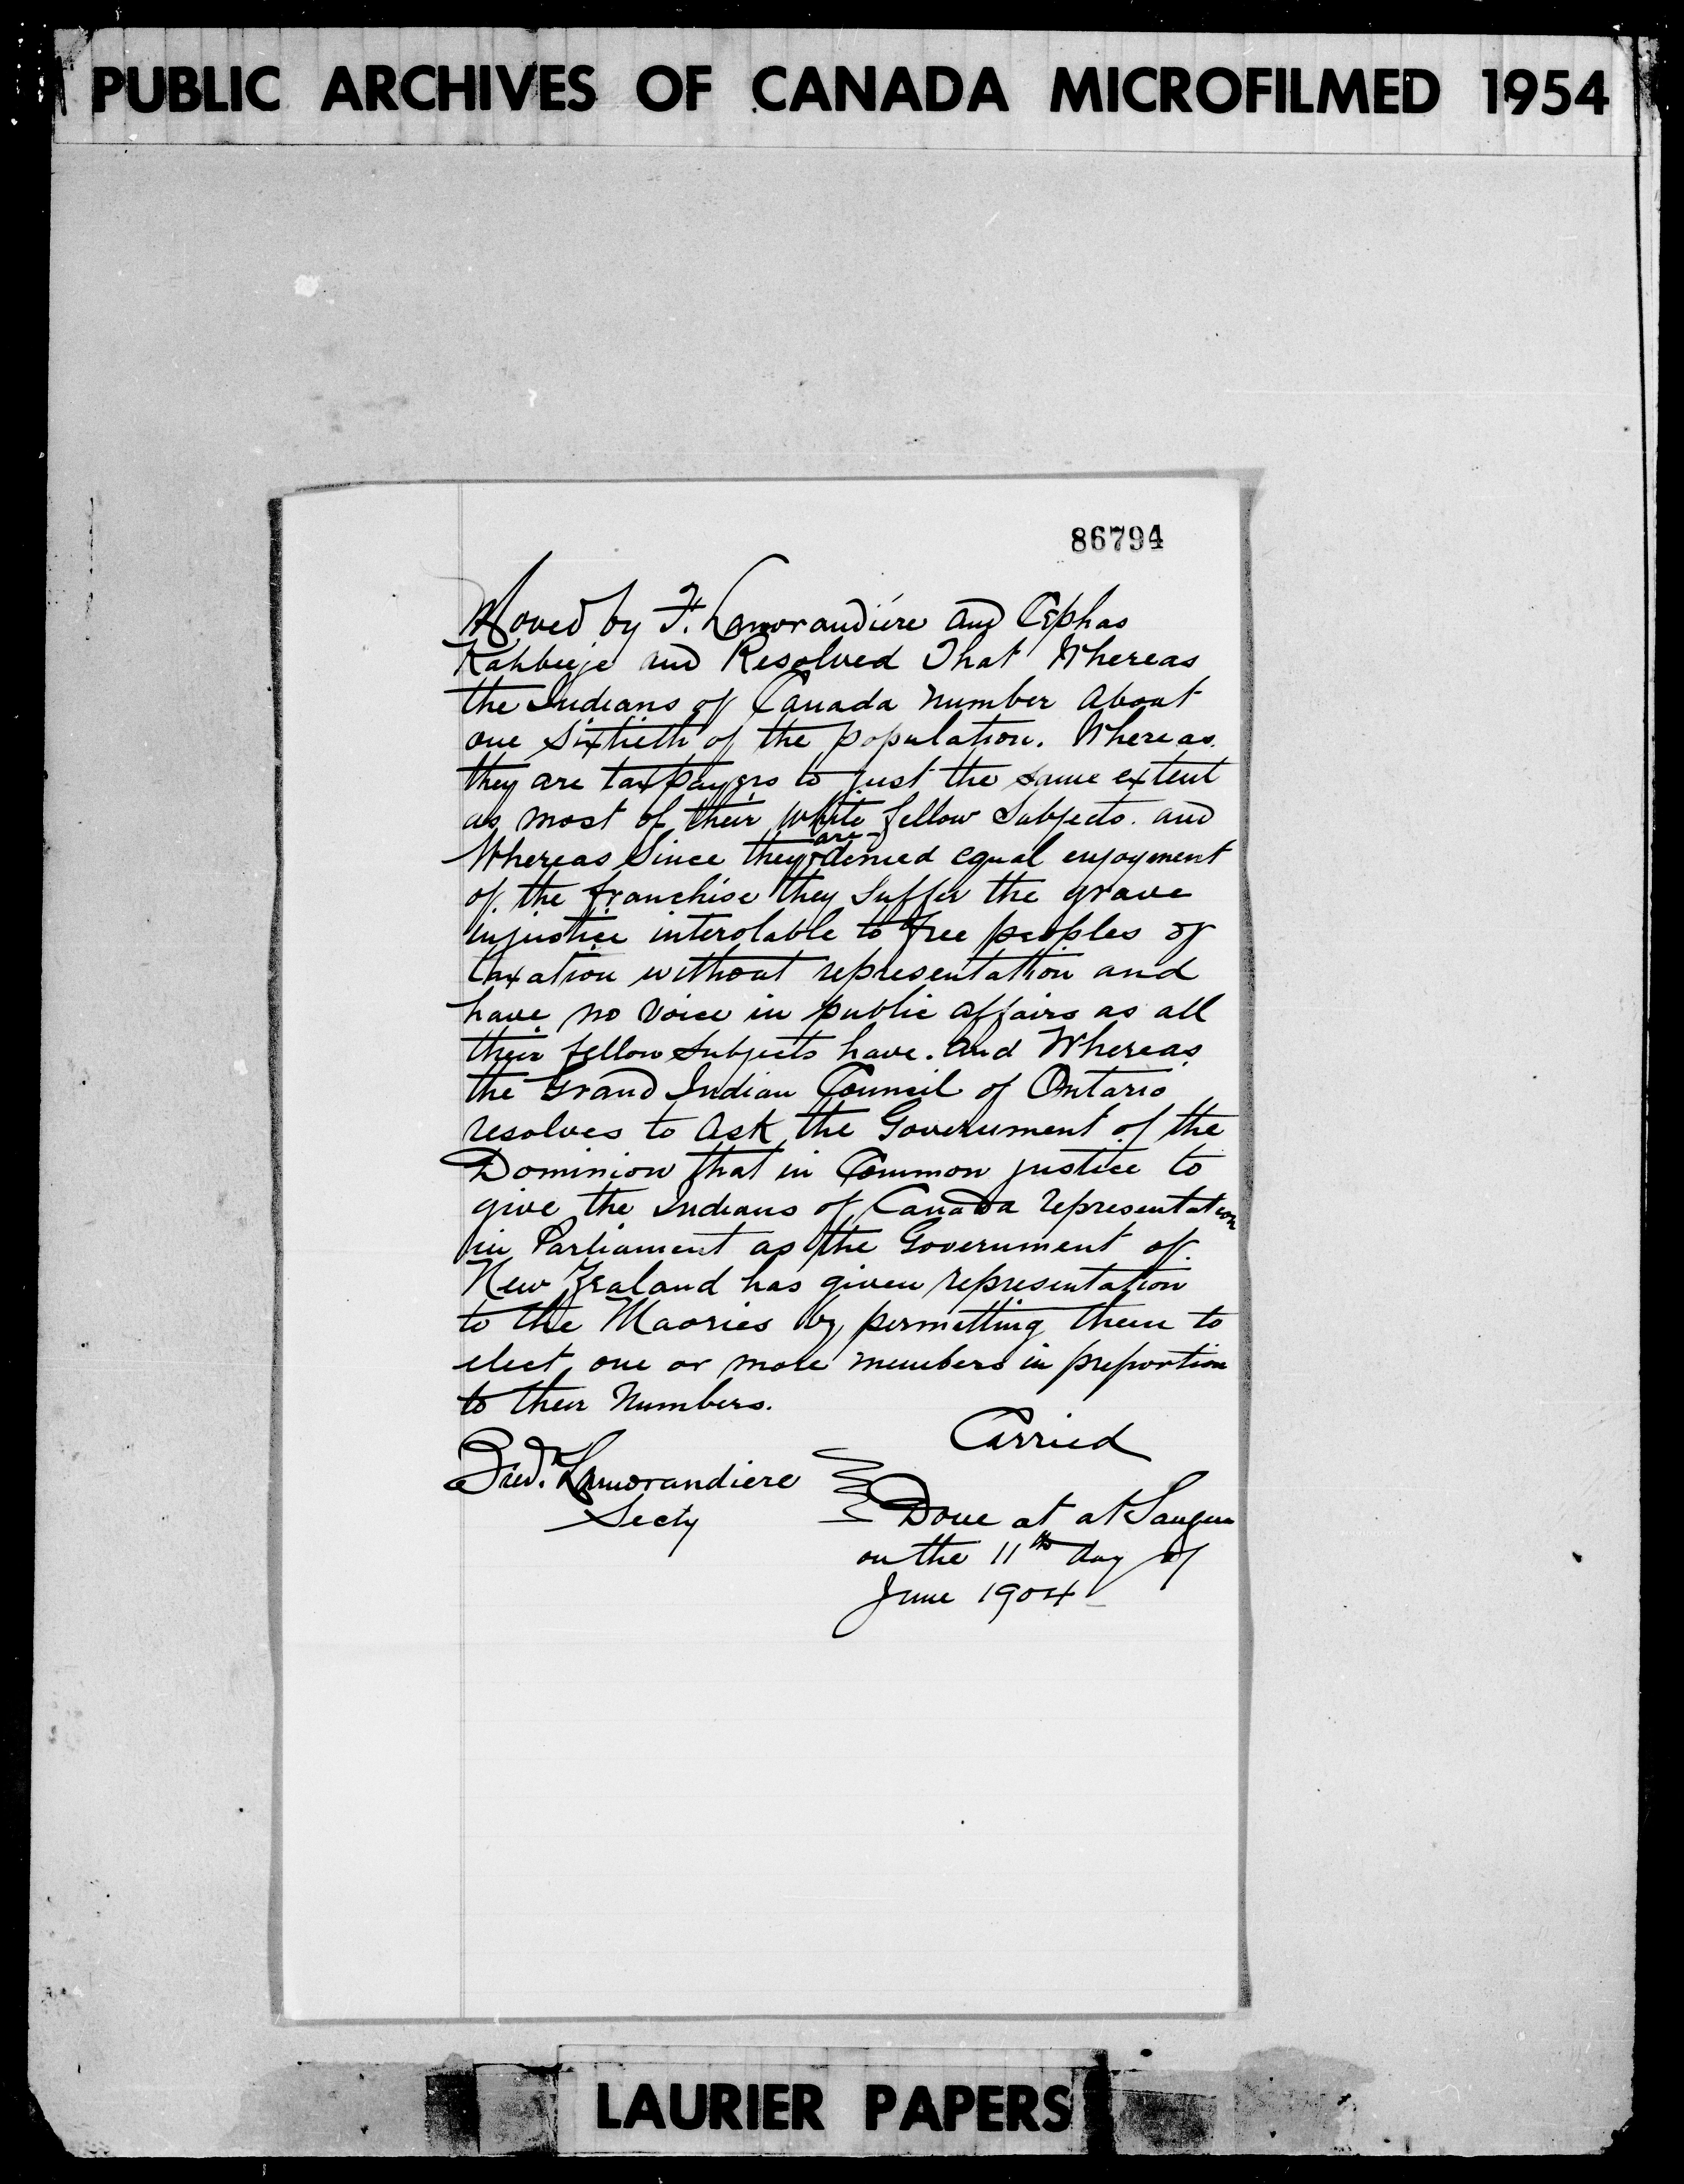 PUBLIC ARCHIVES OF CANADA MICROFILMED 1954
86794
Moved by F. Lamorandiére and Cephas
Kahbeeje and Resolved That Whereas
the Indians of Canada number about
one sixtieth of the population. Whereas
they are taxpayers to just the same extent
as most of their white fellow Subjects. and
Whereas Since they are denied equal enjoyment
of the franchise they suffer the grave
injustice interolable to free peoples of
taxation without representation and
have no voice in public affairs as all
their fellow subjects have. And Whereas
the Grand Indian Council of Ontario
resolves to ask the Government of the
Dominion that in Common justice to
give the Indians of Canada representation
in Parliament as the Government of
New Zealand has given representation
to the Maories by permitting them to
elect one or more members in preportion
to their Numbers.
Carried
Fred. Lamorandiere
Secty
Done at at Saugeen
on the 11th day of
June 1904
LAURIER PAPERS